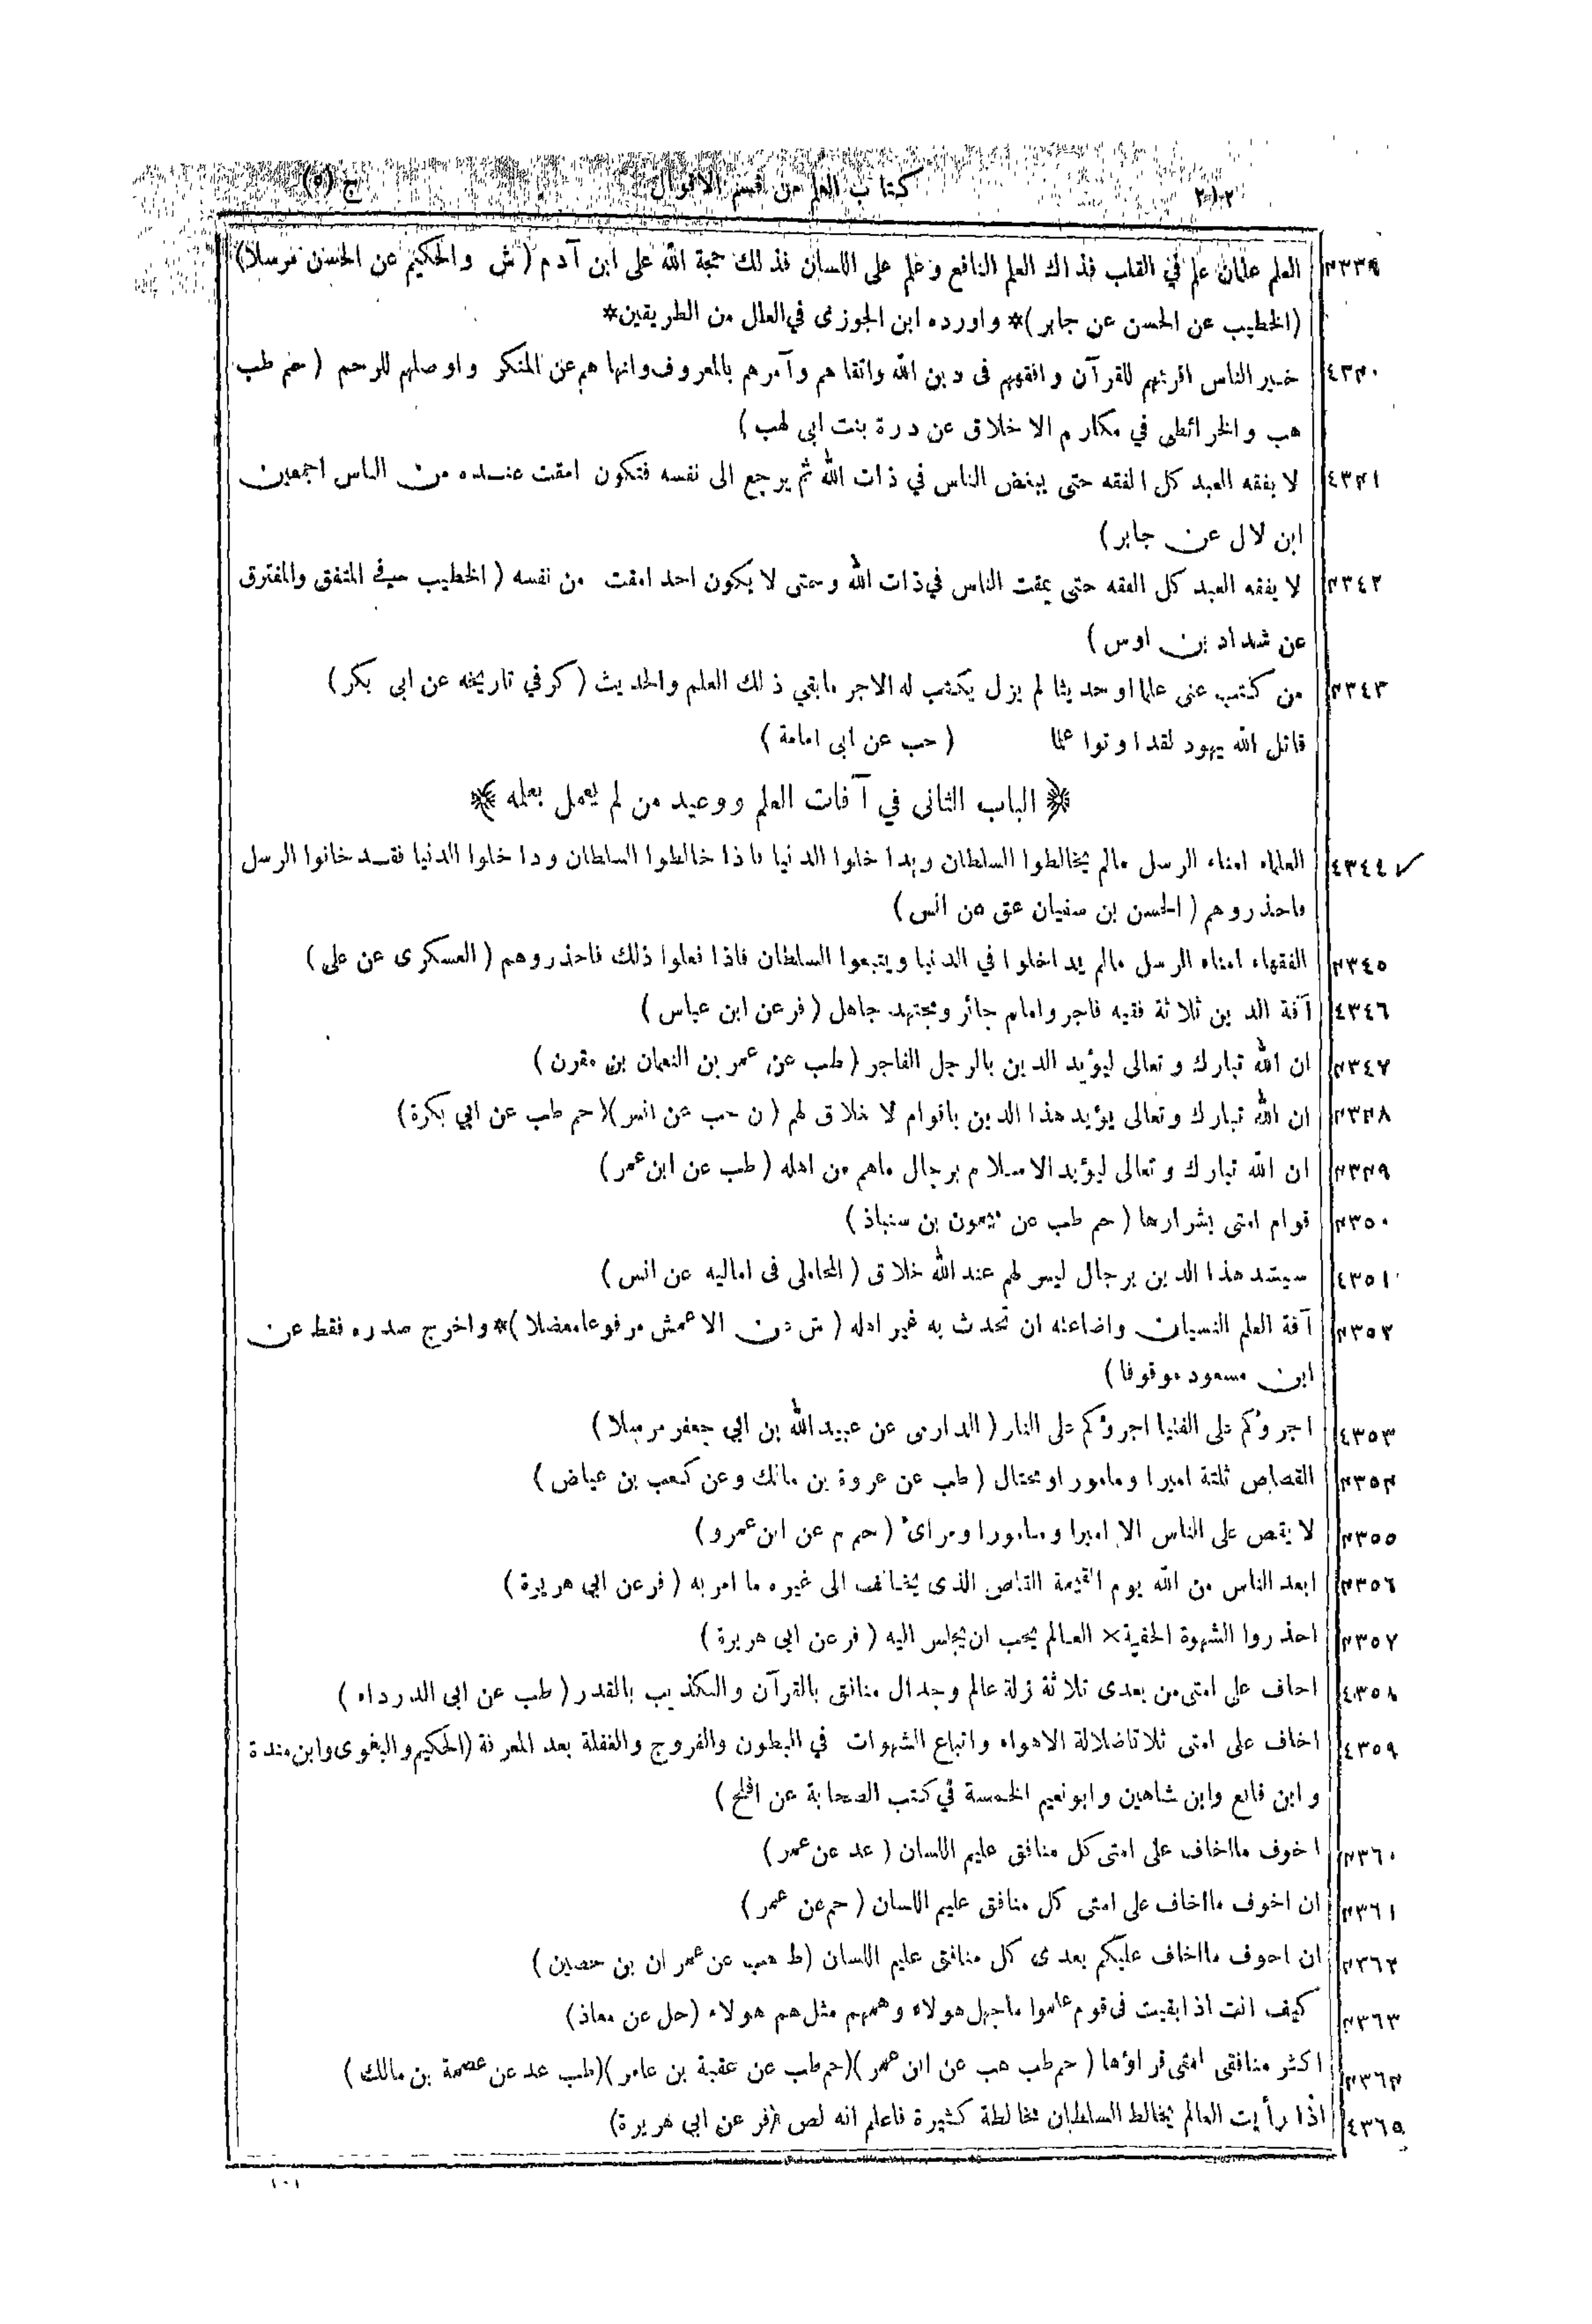 ٢٠٢ كتاب العلم من قسم الاقوال ج (٥)
٤٣٣٩ العلم علمان علم في القلب فذاك العلم النافع وعلم على اللسان فذلك حجة الله على ابن آدم (ش والحكيم عن الحسن مرسلا)
(الخطيب عن الحسن عن جابر)* واورده ابن الجوزى في العلل من الطريقين*
٤٣٤٠ خير الناس اقرئهم للقرآن وافقههم فى دين الله واتقاهم وآمرهم بالمعروف وانهاهم عن المنكر واوصلهم للرحم (حم طب
هب والخرائطى في مكارم الاخلاق عن درة بنت ابى لهب)
٤٣٤١ لا يفقه العبد كل الفقه حتى يبغض الناس في ذات الله ثم يرجع الى نفسه فتكون امقت عنده من الناس اجمعين
ابن لال عن جابر)
٤٣٤٢ لا يفقه العبد كل الفقه حتى يمقت الناس في ذات الله وحتى لا يكون احد امقت من نفسه (الخطيب في المتفق والمفترق
عن شداد بن اوس)
٤٣٤٣ من كتب عنى علما او حديثا لم يزل يكتب له الاجر مابقي ذلك العلم والحديث (كر في تاريخه عن ابى بكر)
قاتل الله يهود لقد اوتوا علما (حب عن ابى امامة)
الباب الثانى في آفات العلم ووعيد من لم يعمل بعلمه
٤٣٤٤ العلماء امناء الرسل مالم يخالطوا السلطان ويداخلوا الدنيا فاذا خالطوا السلطان وداخلوا الدنيا فقد خانوا الرسل
فاحذروهم (الحسن بن سفيان عق عن انس)
٤٣٤٥ الفقهاء امناء الرسل مالم يداخلوا في الدنيا ويتبعوا السلطان فاذا فعلوا ذلك فاحذروهم (العسكرى عن على)
٤٣٤٦ آفة الدين ثلاثة فقيه فاجر وامام جائر ومجتهد جاهل (فر عن ابن عباس)
٤٣٤٧ ان الله تبارك وتعالى ليؤيد الدين بالرجل الفاجر (طب عن عمر بن النعمان بن مقرن)
٤٣٤٨ ان الله تبارك وتعالى يؤيد هذا الدين باقوام لا خلاق لهم (ن حب عن انس)(حم طب عن ابي بكرة)
٤٣٤٩ ان الله تبارك وتعالى ليؤيد الاسلام برجال ماهم من اهله (طب عن ابن عمر)
٤٣٥٠ قوام امتى بشرارها (حم طب عن ميمون بن سنباذ)
٤٣٥١ سيشد هذا الدين برجال ليس لهم عند الله خلاق (المحاملى فى اماليه عن انس)
٤٣٥٢ آفة العلم النسيان واضاعته ان تحدث به غير اهله (ش عن الاعمش مرفوعا معضلا)* واخرج صدره فقط عن
ابن مسعود موقوفا)
٤٣٥٣ اجروكم على الفتيا اجروكم على النار (الدارمى عن عبيد الله بن ابي جعفر مرسلا)
٤٣٥٤ القصاص ثلثة اميرا ومامور او مختال (طب عن عروة بن مالك وعن كعب بن عياض)
٤٣٥٥ لا يقص على الناس الا اميرا ومامورا ومراىٔ (حم م عن ابن عمرو)
٤٣٥٦ ابعد الناس من الله يوم القيمة القاص الذى يخالف الى غيره ما امر به (فر عن ابي هريرة)
٤٣٥٧ احذروا الشهوة الخفية× العالم يحب ان يجلس اليه (فر عن ابى هريرة)
٤٣٥٨ اخاف على امتى من بعدى ثلاثة زلة عالم وجدال منافق بالقرآن والتكذيب بالقدر (طب عن ابى الدرداء)
٤٣٥٩ اخاف على امتى ثلاثا ضلالة الاهواء واتباع الشهوات في البطون والفروج والغفلة بعد المعرفة (الحكيم والبغوى وابن مندة
وابن قانع وابن شاهين وابو نعيم الخمسة في كتب الصحابة عن افلح)
٤٣٦٠ اخوف مااخاف على امتى كل منافق عليم اللسان (عد عن عمر)
٤٣٦١ ان اخوف مااخاف على امتى كل منافق عليم اللسان (حم عن عمر)
٤٣٦٢ ان اخوف مااخاف عليكم بعدى كل منافق عليم اللسان (ط هب عن عمران بن حصين)
٤٣٦٣ كيف انت اذا بقيت فى قوم علموا ماجهل هولاء وهمهم مثل هم هولاء (حل عن معاذ)
٤٣٦٤ اكثر منافقى امتى قراؤها (حم طب هب عن ابن عمر)(حم طب عن عقبة بن عامر)(طب عد عن عصمة بن مالك)
٤٣٦٥ اذا رأيت العالم يخالط السلطان مخالطة كثيرة فاعلم انه لص (فر عن ابى هريرة)
١٠١